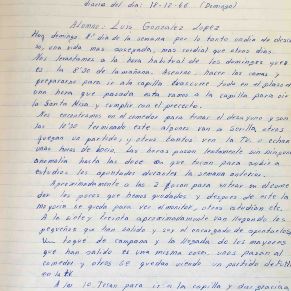 Diario del día: 18-12-66 (Domingo)
Alumno: Luis González López
Hoy domingo 1º día de la semana por lo tanto un día de descan
so, una vida mas sosegada, mas cordial que otros días.
Nos levantamos a la hora habitual de los domingos que
es la 8'30 de la mañana. Asearse, hacer las camas y
prepararse para ir a la capilla transcurre todo en el plazo de
una hora que pasada esta vamos a la capilla para oir
la Santa Misa y cumplir con el precepto.
Nos encontramos en el comedor para tomar el desayuno y son
las 10'30 terminado este algunos van a Sevilla, otros
juegan un partido, y otros tantos ven la TV. o echan
unas horas de socio. Las horas pasan lentamente sin ninguna
anomalia hasta las doce en que tocan para subir a
estudios los apuntados durante la semana anterior.
Aproximadamente a las 2 tocan para entrar en el come
dor los pocos que hemos quedados y despues de este la
mayoría se queda para ver el montés, otros estudian etc.
A la siete y treinta aproximadamente van llegando los
pequeños que han salido y soy el encargado de apuntarlos
Un toque de campana y la llegada de los mayores
que han salido es una misma cosa. unos pasan al
comedor y otros se quedan viendo un partido de fútbol
en la TV.
A las 10 Tocan para ir a la capilla y dar gracias a